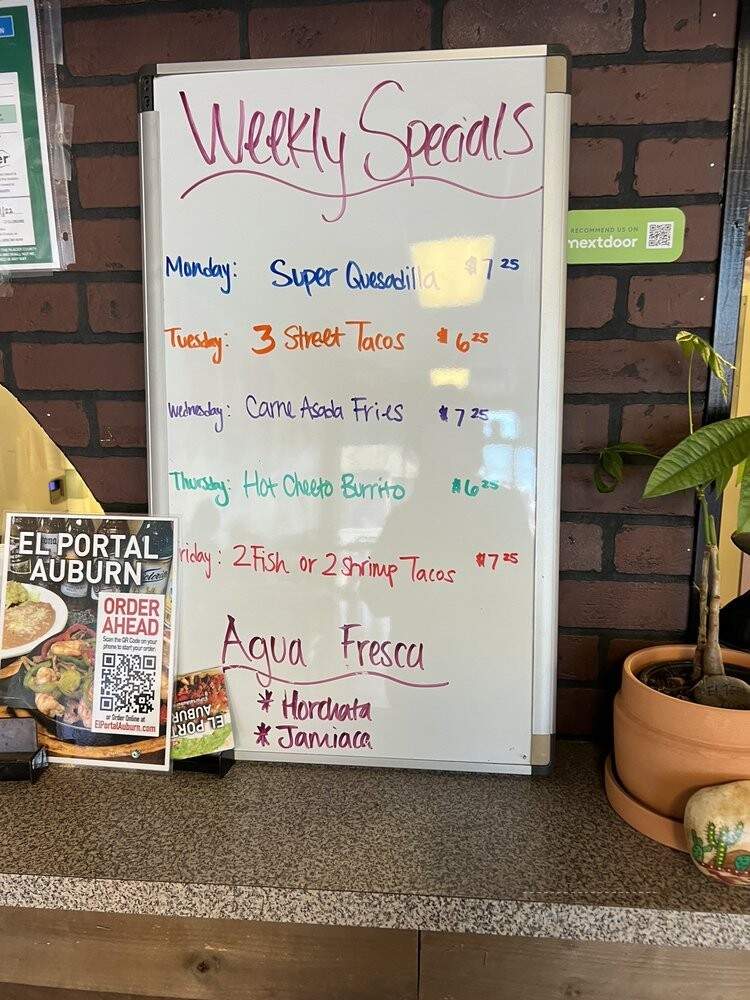 Weekly Specials
Monday: Super Quesadilla $7 25
Tuesday: 3 Street Tacos $6 25
Wednesday: Carne Asada Fries $7 25
Thursday: Hot Cheeto Burrito $6 25
riday: 2 Fish or 2 Shrimp Tacos $7 25
Agua Fresca
* Horchata
* Jamiaca
RECOMMEND US ON
nextdoor
EL PORTAL
AUBURN
ORDER
AHEAD
Scan the QR Code on your
phone to start your order.
or Order Online at
ElPortalAuburn.com
EL POR
AUBUR